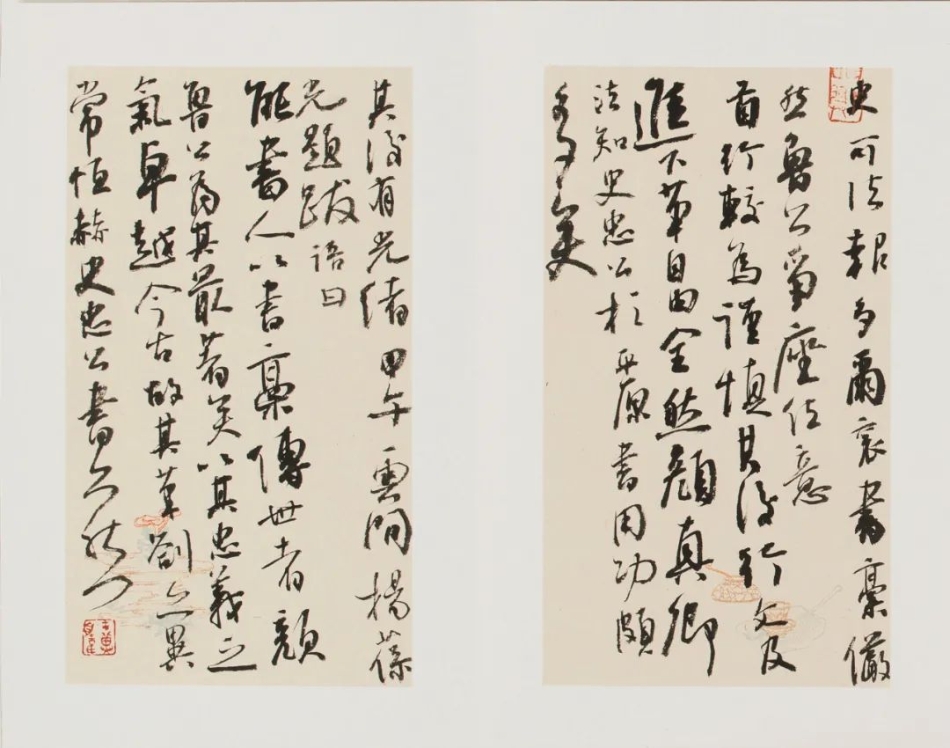 史可法報多爾袞書稾儼
然魯公爭座位意
首行較為謹慎其後行文及
進下筆自由全然顏真卿
法知史忠公於平原書用功頗
多矣
其後有光緒甲午雲間楊葆
光題跋語曰
能書人以書稾傳世者顏
魯公為其最著矣以其忠義之
氣卓越今古故其筆劄亦異
常恒赫史忠公書亦然